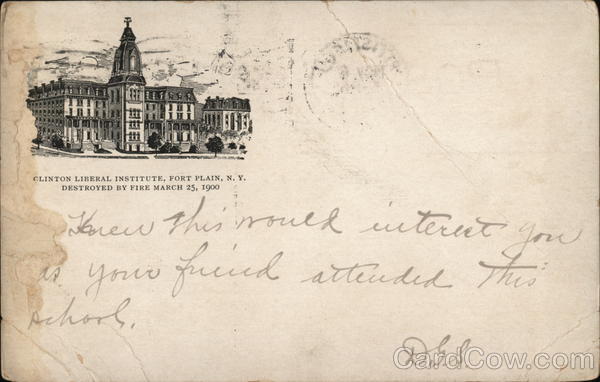 CLINTON LIBERAL INSTITUTE, FORT PLAIN, N. Y.
DESTROYED BY FIRE MARCH 25, 1900
Knew this would interest you
as your friend attended this
school.
CardCow.com